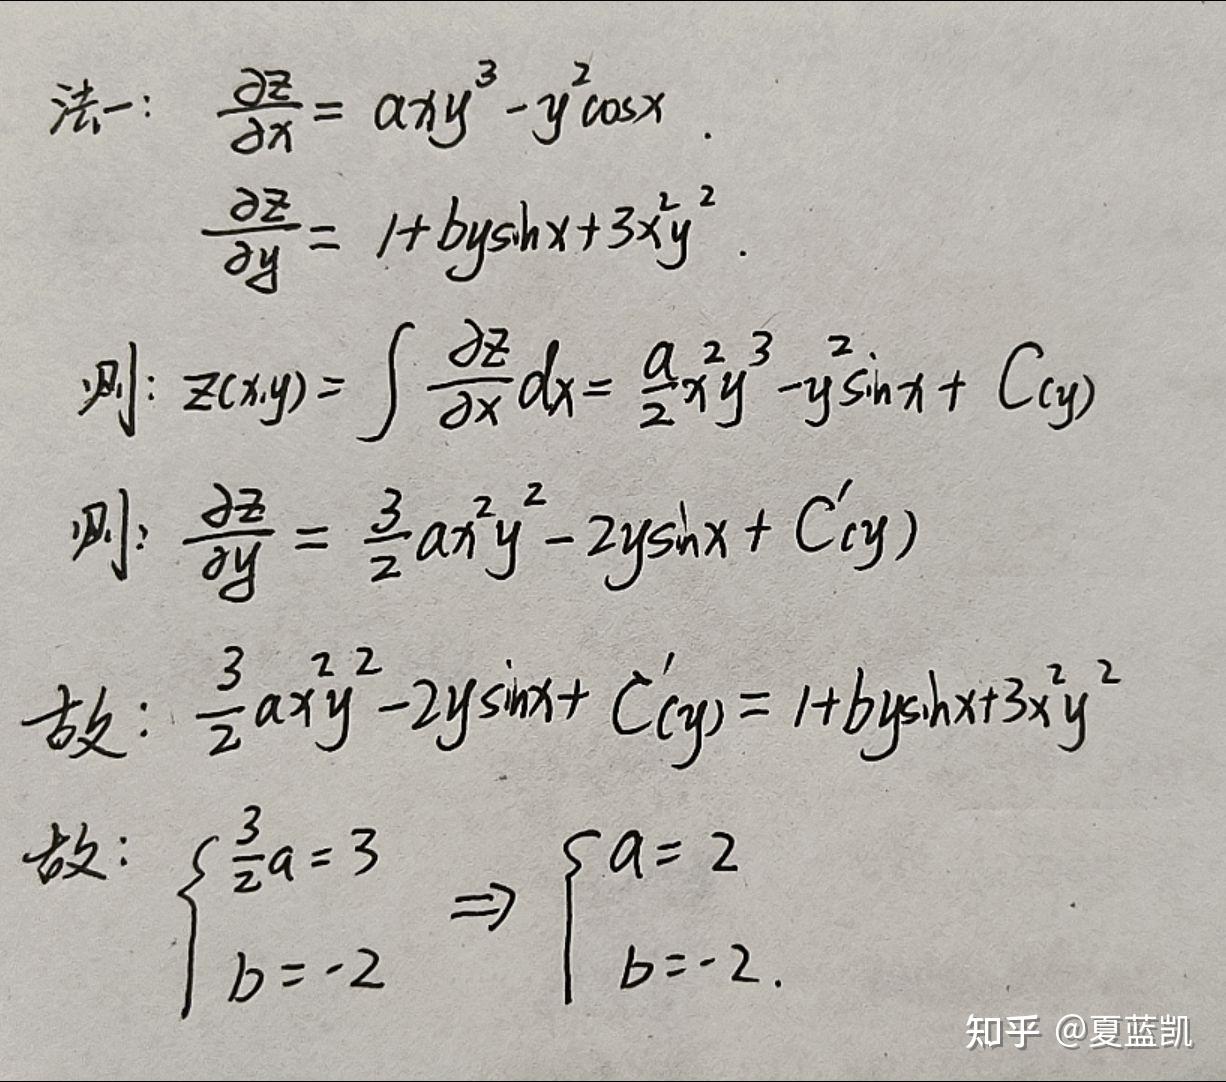 法一: ∂z/∂x = axy³ - y²cosx .
∂z/∂y = 1+bysinx+3x²y² .
则: z(x,y) = ∫ ∂z/∂x dx = a/2 x²y³ - y²sinx + C(y)
则: ∂z/∂y = 3/2 ax²y² - 2ysinx + C'(y)
故: 3/2 ax²y² - 2ysinx + C'(y) = 1+bysinx+3x²y²
故: { 3/2 a = 3 ⇒ { a = 2
b = -2 b = -2.
知乎 @夏蓝凯